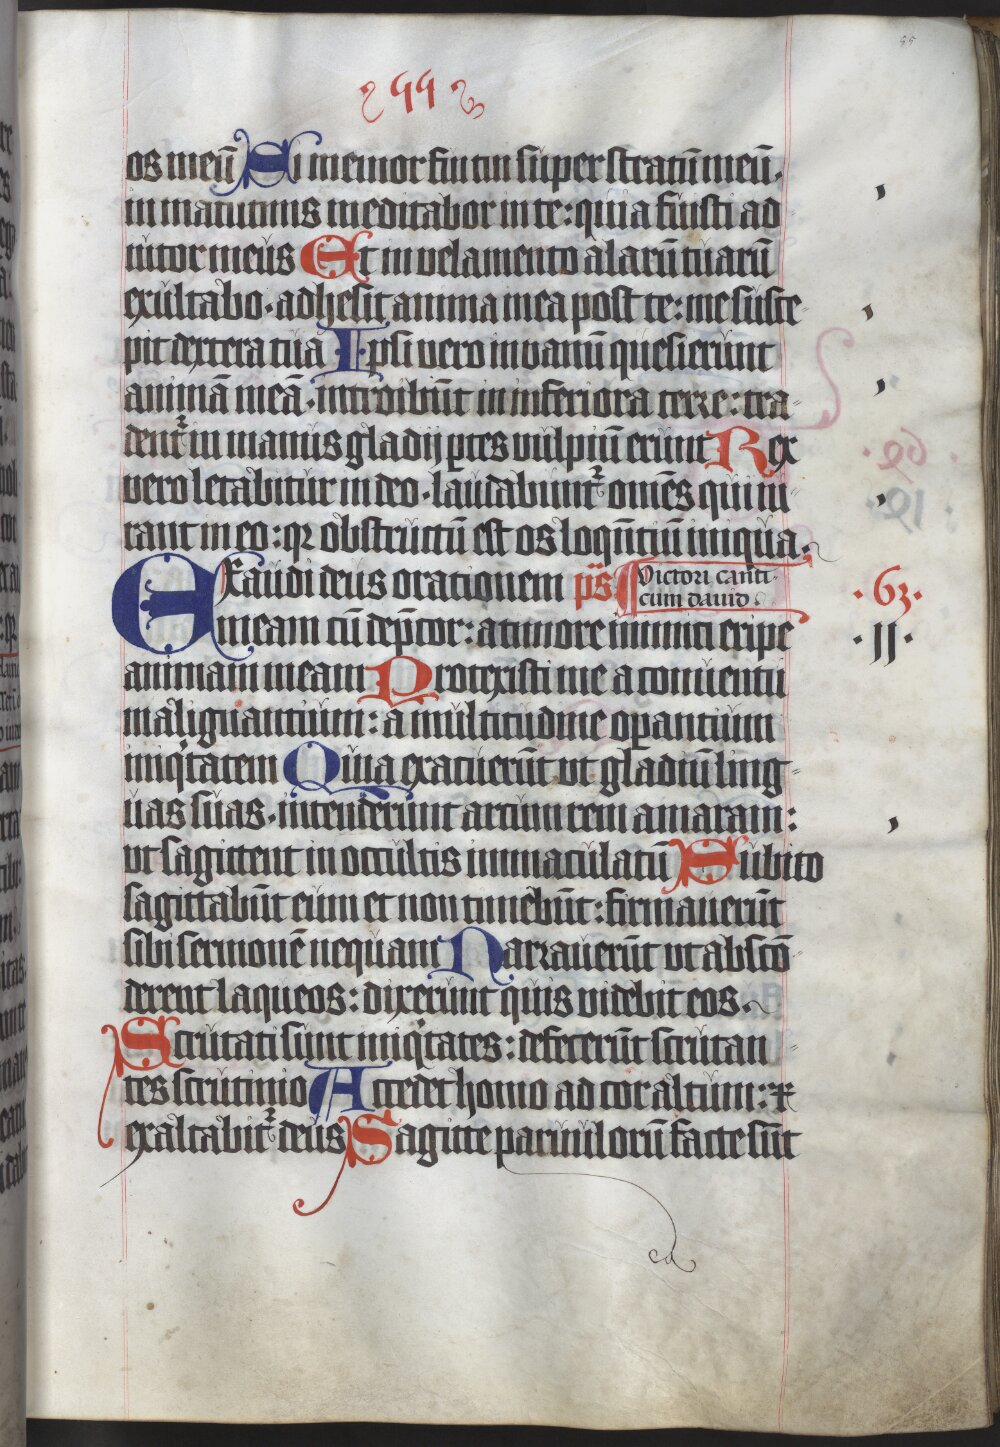 55
55
os meū Si memor fui tui super stratū meū.
in matutinis meditabor in te: quia fuisti ad-
iutor meus Et in velamento alarū tuarū
exultabo. adhesit anima mea post te: me susce-
pit dextera tua Ipsi vero in vanū quesierunt
animā meā. introibūt in inferiora terre: tra-
dent᷑ in manus gladij ꝑtes vulpiū erunt Rex
vero letabitur in deo. laudabunt᷑ om̄es qui iu-
rant in eo: qꝛ obstructū est os loqūtiū iniqua.
Exaudi deus orationem p̄s Victori canti-
cum dauid.
.63.
meam cū dep̄cor: a timore inimici eripe
.II.
animam meam Protexisti me a conuentu
malignantium: a multitudine oꝑantium
iniqͥtatem Quia exacuerūt ut gladiū ling-
uas suas. intenderunt arcum rem amaram:
ut sagittent in occultis immaculatū Subito
sagittabūt eum et non timebūt: firmauerūt
sibi sermonē nequam Narrauerūt ut abscō-
derent laqueos: dixerunt quis videbit eos.
Scrutati sunt iniqͥtates: defecerūt scrutan-
tes scrutinio Accedet homo ad cor altum: ⁊
exaltabit᷑ deus Sagitte paruulorū facte sūt